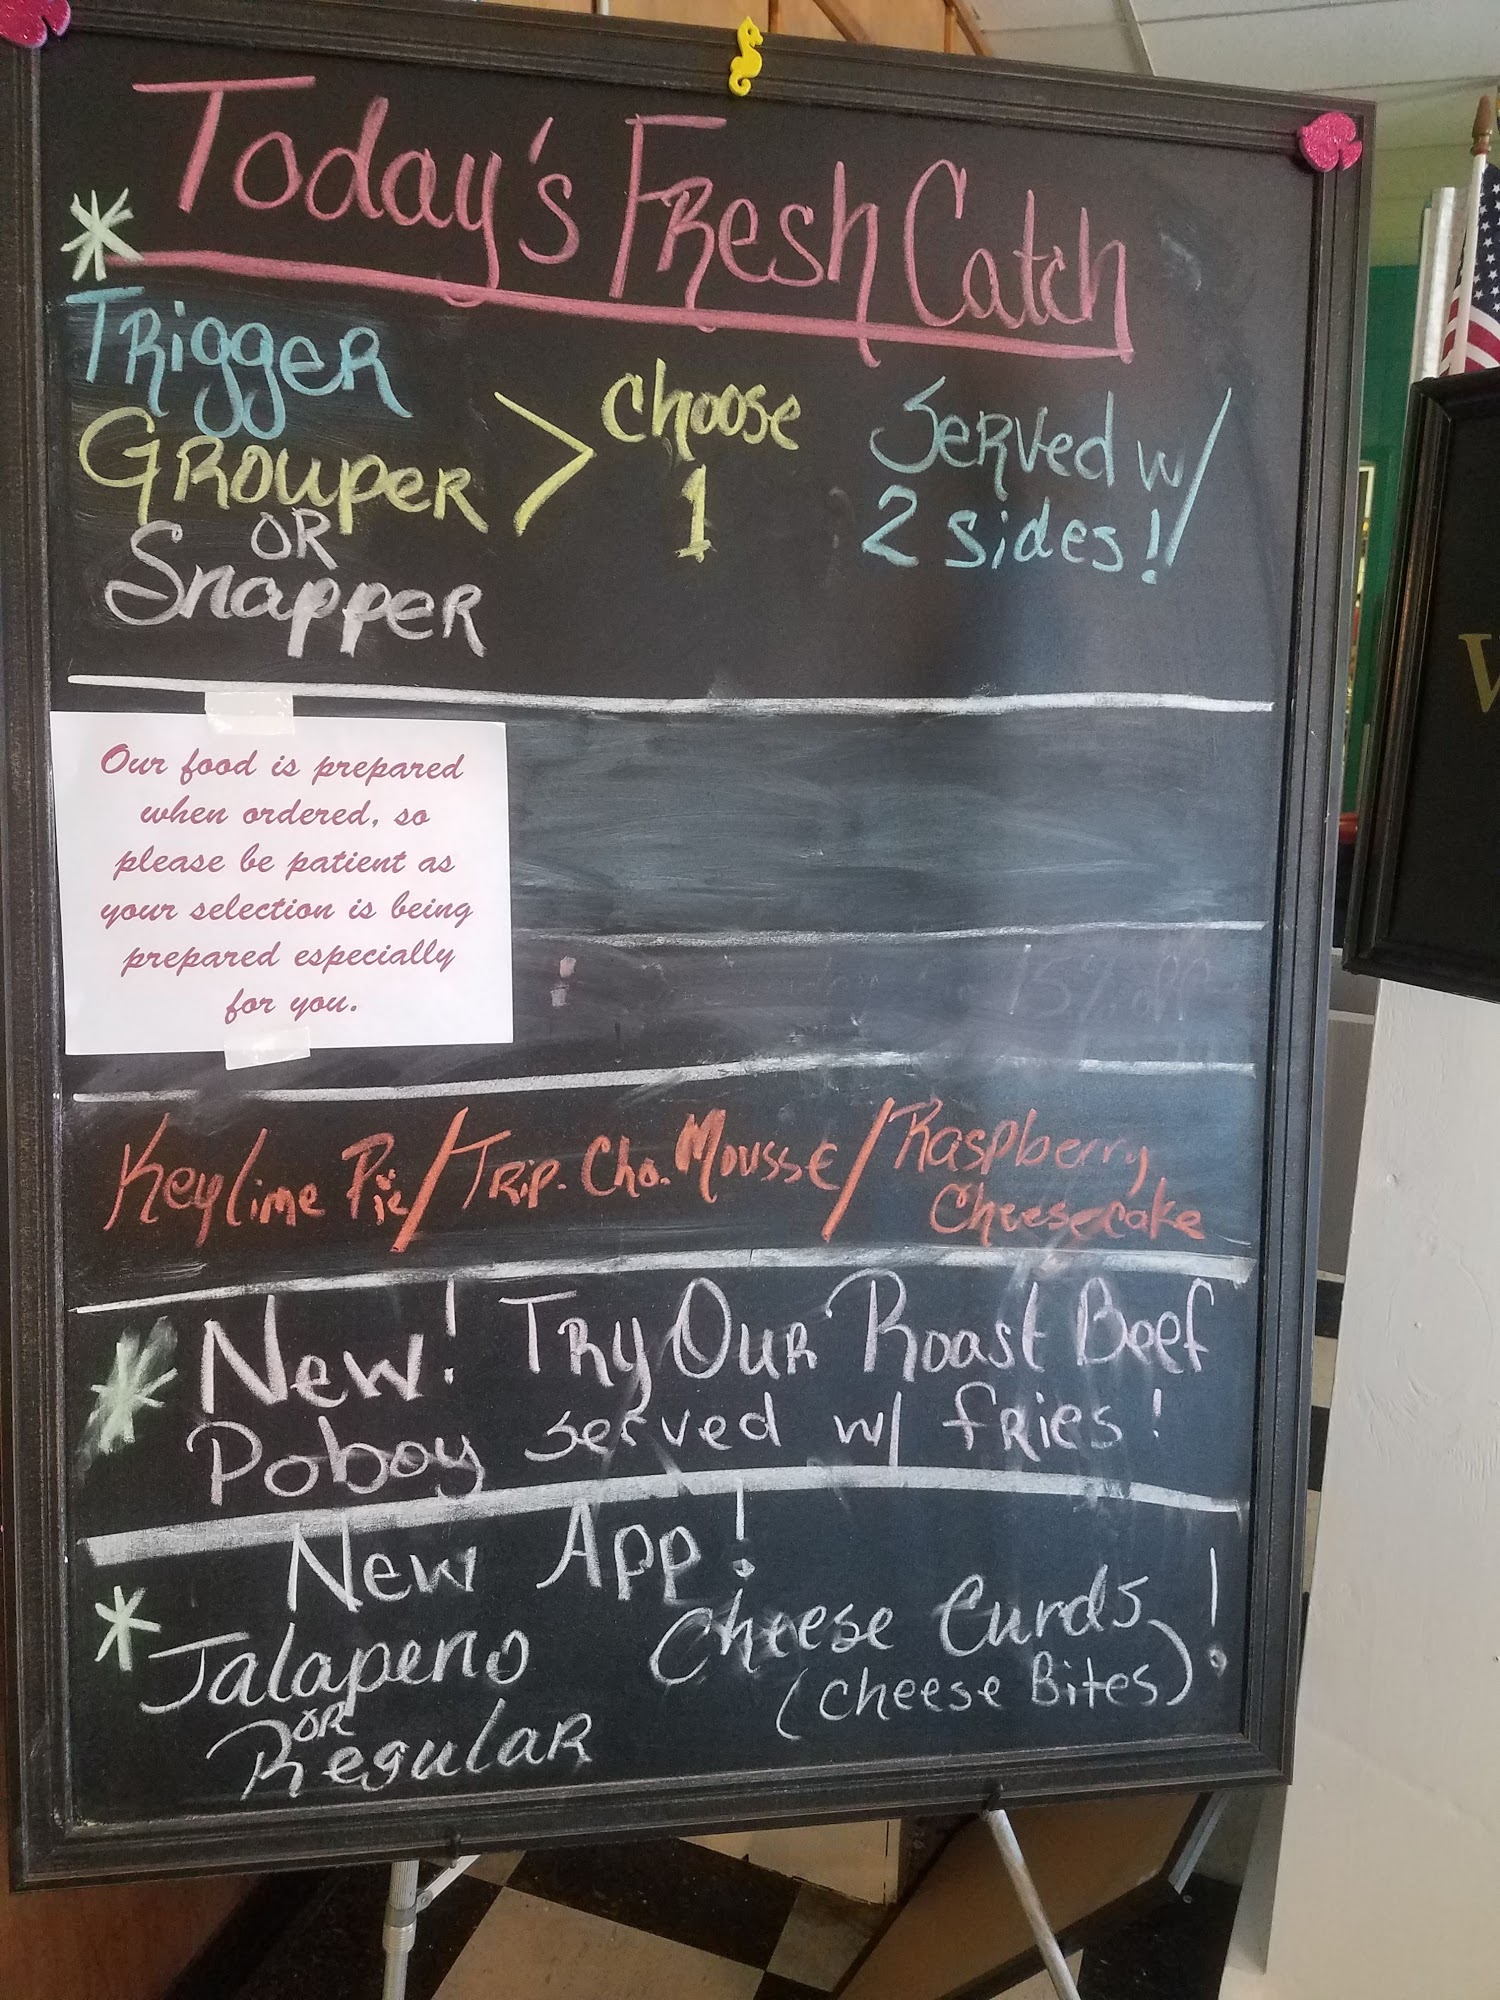 Today's Fresh Catch
* Trigger
Grouper > Choose 1 Served w/ 2 sides!
or
Snapper
Our food is prepared
when ordered, so
please be patient as
your selection is being
prepared especially
for you.
15% off
Keylime Pie / Trip. Cho. Mousse / Raspberry
Cheesecake
* New! Try Our Roast Beef
Poboy served w/ fries!
New App!
* Jalapeno Cheese Curds!
or (cheese Bites)
Regular